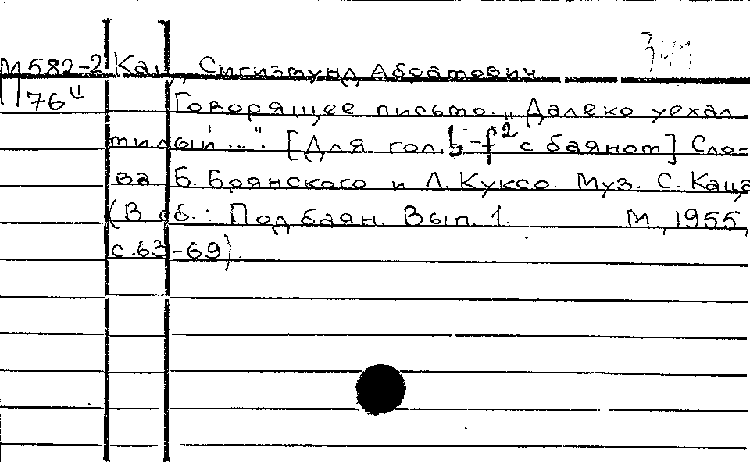 М 582-2 Кац, Сигизмунд Абрамович
П 76 Говорящее письмо. „Далеко уехал
милый...". [Для гол. b-f² с баяном] Сло-
ва Б. Брянского и Л. Куксо. Муз. С. Каца
(В сб.: Под баян. Вып. 1. М., 1955,
с. 63-69).